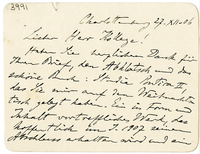 3991
Charlottenburg 27.XII.06
Lieber Herr Kollege!
Haben Sie herzlichen Dank für
Ihren Brief, den Abklatsch und das
schöne Buch: Studia Pontica II,
das Sie mir auf den Weihnachts
tisch gelegt haben. Ein in Form und
Inhalt vortreffliches Werk, das
hoffentlich im J. 1907 seinen
Abschluss erhalten wird und ein